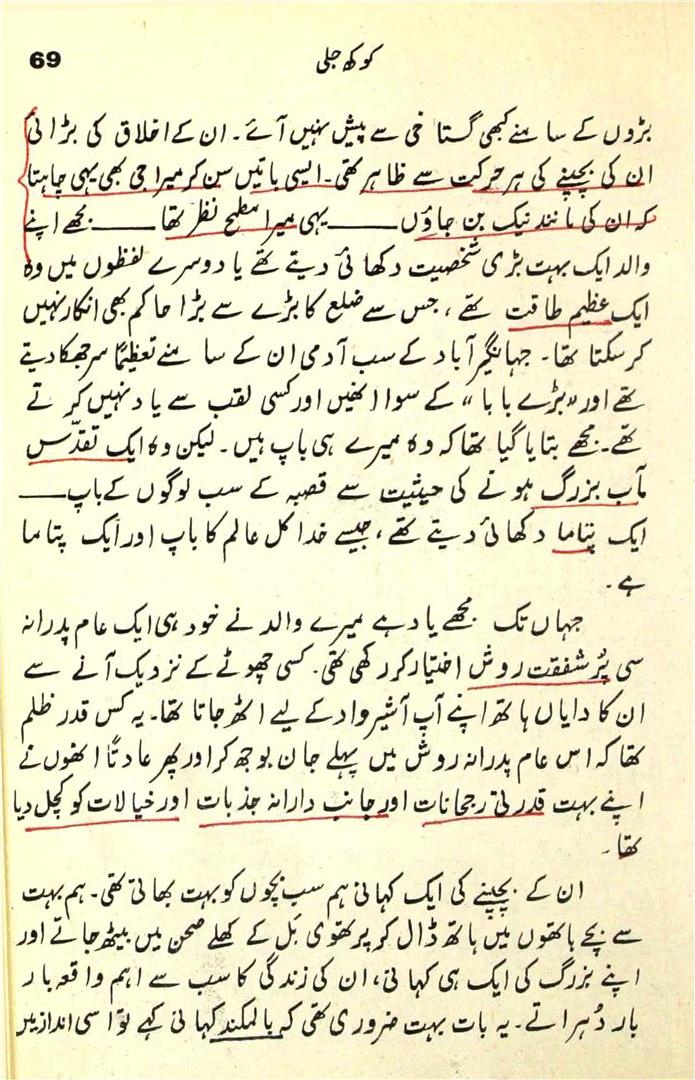 کوکھ جلی
69
بڑوں کے سامنے کبھی گستاخی سے پیش نہیں آئے۔ ان کے اخلاق کی بڑائی
ان کی بچپنے کی ہر حرکت سے ظاہر تھی۔ ایسی باتیں سن کر میرا جی بھی یہی چاہتا
کہ ان کی مانند نیک بن جاؤں ـــــ یہی میرا مطمحِ نظر تھا ـــــ مجھے اپنے
والد ایک بہت بڑی شخصیت دکھائی دیتے تھے یا دوسرے لفظوں میں وہ
ایک عظیم طاقت تھے، جس سے ضلع کا بڑے سے بڑا حاکم بھی انکار نہیں
کر سکتا تھا۔ جہانگیر آباد کے سب آدمی ان کے سامنے تعظیماً سر جھکا دیتے
تھے اور “بڑے بابا” کے سوا انھیں اور کسی لقب سے یاد نہیں کرتے
تھے۔ مجھے بتایا گیا تھا کہ وہ میرے ہی باپ ہیں۔ لیکن وہ ایک تقدّس
مآب بزرگ ہونے کی حیثیت سے قصبہ کے سب لوگوں کے باپ ـــــ
ایک پتاما دکھائی دیتے تھے، جیسے خدا کل عالم کا باپ اور ایک پتاما
ہے۔
جہاں تک مجھے یاد ہے میرے والد نے خود ہی ایک عام پدرانہ
سی پُر شفقت روش اختیار کر رکھی تھی۔ کسی چھوٹے کے نزدیک آنے سے
ان کا دایاں ہاتھ اپنے آپ آشیرواد کے لیے اٹھ جاتا تھا۔ یہ کس قدر ظلم
تھا کہ اس عام پدرانہ روش میں پہلے جان بوجھ کر اور پھر عادتاً انھوں نے
اپنے بہت قدرتی رجحانات اور جانب دارانہ جذبات اور خیالات کو کچل دیا
تھا۔
ان کے بچپنے کی ایک کہانی ہم سب بچوں کو بہت بھاتی تھی۔ ہم بہت
سے بچے ہاتھوں میں ہاتھ ڈال کر پرتھوی بَل کے کھلے صحن میں بیٹھ جاتے اور
اپنے بزرگ کی ایک ہی کہانی، ان کی زندگی کا سب سے اہم واقعہ بار
بار دُہراتے۔ یہ بات بہت ضروری تھی کہ بالمکند کہانی کہے تو اسی انداز میں